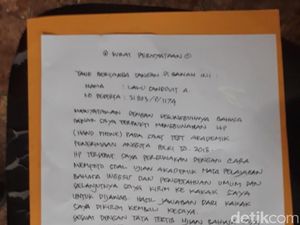 @ SURAT PERNYATAAN @
YANG BERTANDA TANGAN DI BAWAH INI :
NAMA : LALU A.
NO PESERTA :
MENYATAKAN DENGAN SESUNGGUHNYA BAHWA
BENAR SAYA TERBUKTI MENGGUNAKAN HP
(HAND PHONE) PADA SAAT TEST AKADEMIK
PENERIMAAN ANGGOTA POLRI TA. 2018.
HP TERSEBUT SAYA PERGUNAKAN DENGAN CARA
MEMFOTO SOAL UJIAN AKADEMIK MATA PELAJARAN
BAHASA INGGRIS DAN PENGETAHUAN UMUM DAN
SELANJUTNYA SAYA KIRIM KE KAKAK SAYA
UNTUK DIJAWAB. HASIL JAWABAN DARI KAKAK
SAYA DIKIRIM KEMBALI KESAYA.
SESUAI DENGAN TATA TERTIB UJIAN BAHWA
detikcom